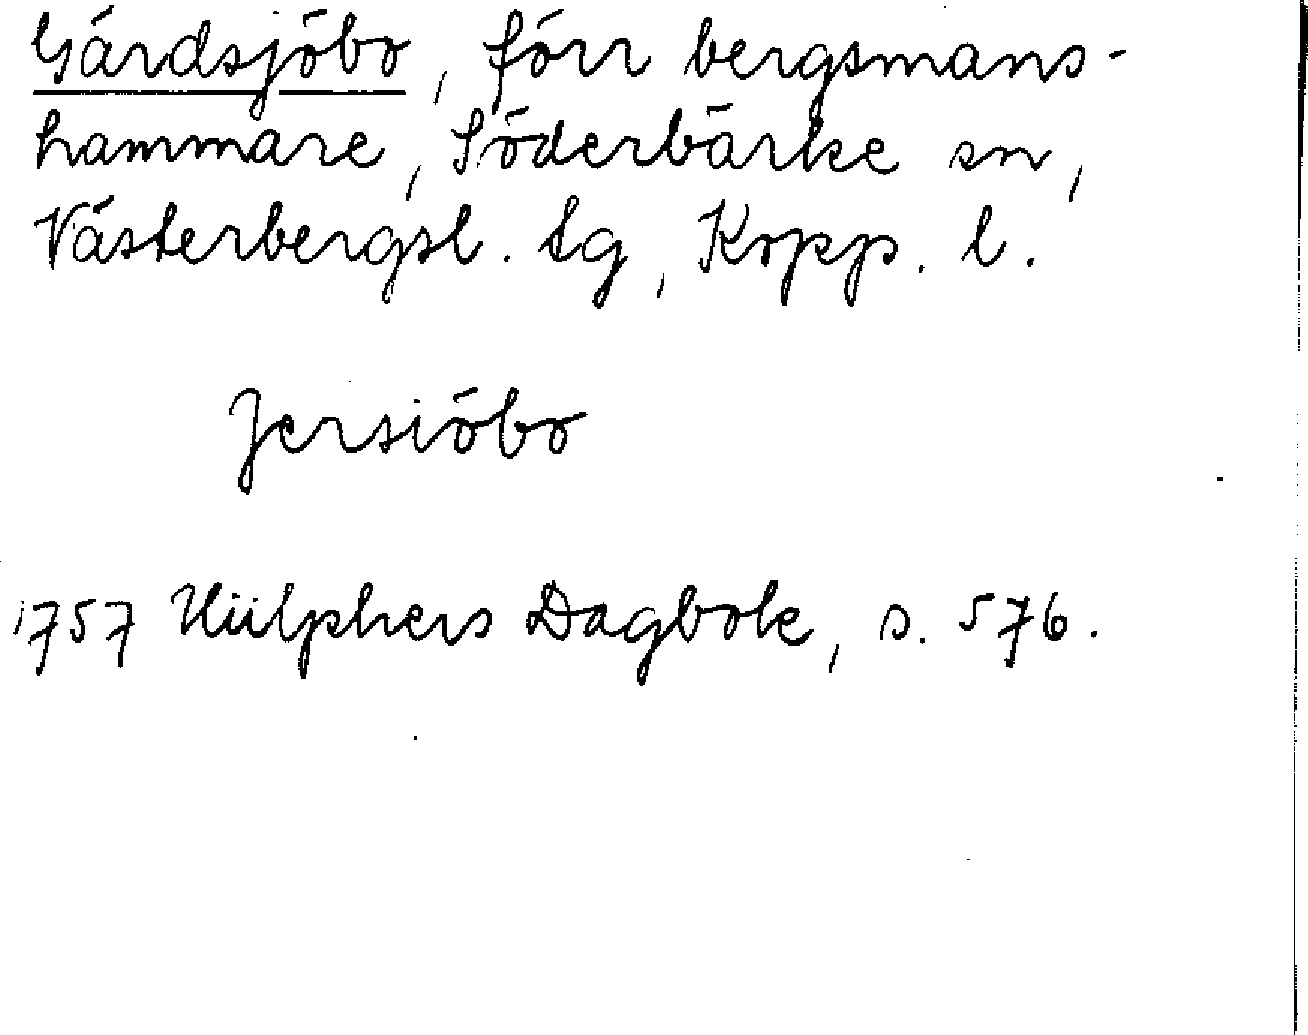 Gärdsjöbo, förr bergsmans-
hammare, Söderbärke sn,
Västerbergsl. tg, Kopp. l.
Jersiöbo
1757 Hülphers Dagbok, s. 576.